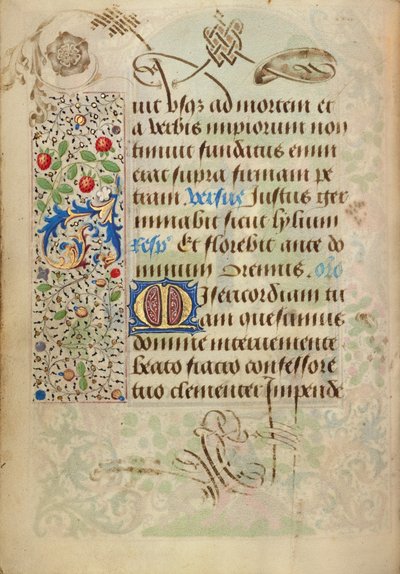 uit usqz ad mortem et
a verbis impiorum non
timuit fundatus enim
erat supra firmam pe
tram versus Justus ger
minabit sicut lylium
resp Et florebit ante do
minum Oremus. oro
Misericordiam tu
am quesumus
domine interueniente
beato fiacro confessore
tuo clementer Impende